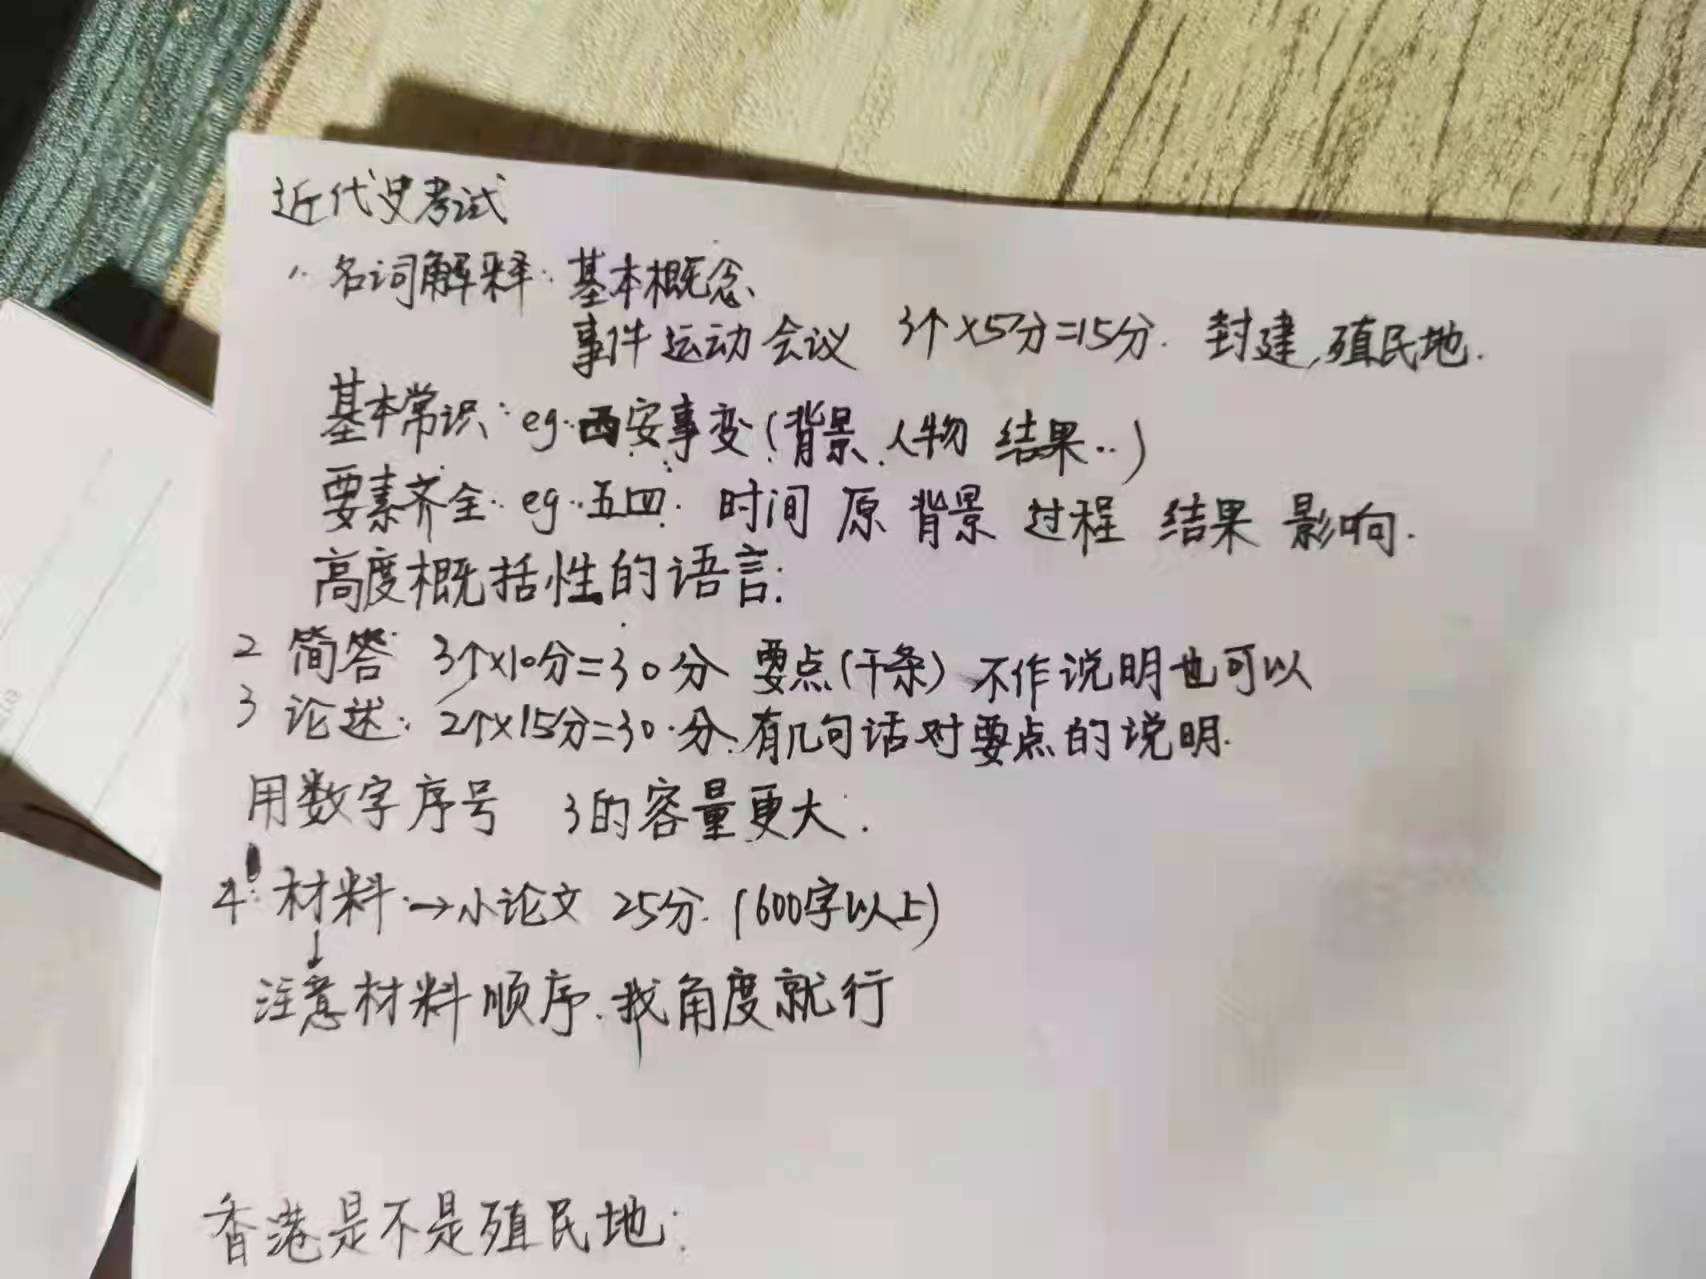 近代史考试
1. 名词解释: 基本概念、
事件 运动 会议 3个×5分=15分. 封建,殖民地.
基本常识: eg. 西安事变(背景.人物 结果..)
要素齐全. eg. 五四. 时间 原 背景 过程 结果 影响.
高度概括性的语言:
2 简答: 3个×10分=30分 要点(干条) 不作说明也可以
3 论述: 2个×15分=30.分.有几句话对要点的说明.
用数字序号 3的容量更大.
4. 材料.→小论文 25分. (600字以上)
↓
注意材料顺序.找角度就行
香港是不是殖民地: